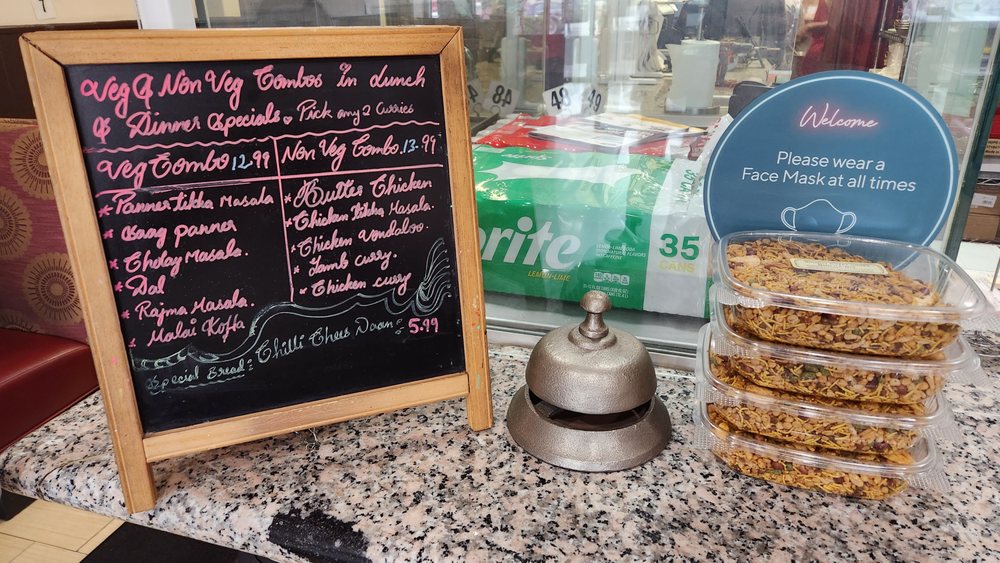 Veg & Non Veg Combos in Lunch
& Dinner Specials Pick any 2 Curries
Veg Combo 12.99
Non Veg Combo. 13.99
* Panner tikka Masala
* Saag panner
* Cholay Masala.
* Dal
* Rajma Masala.
* Malai Kofta
* Butter Chicken
* Chicken tikka Masala.
* Chicken Vondaloo.
* Lamb curry.
* Chicken curry
Special Bread: Chilli Chees Naan: 5.99
48
48
49
rite
LEMON-LIME
35
CANS
Welcome
Please wear a
Face Mask at all times